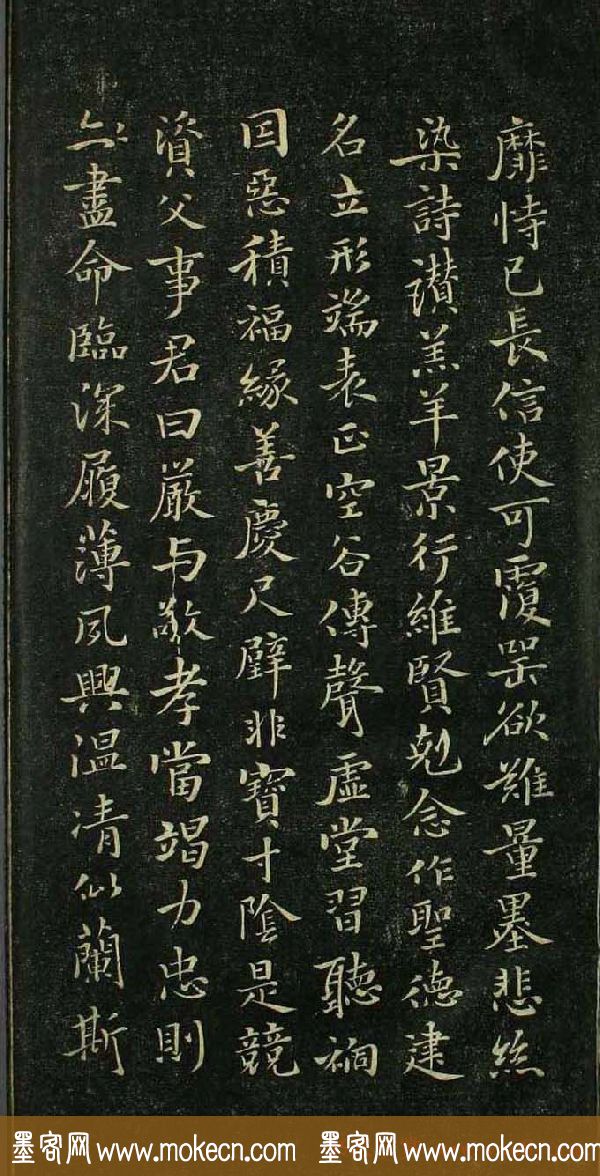 靡恃己長信使可覆器欲難量墨悲絲
染詩讃羔羊景行維賢剋念作聖德建
名立形端表正空谷傳聲虛堂習聽禍
囙惡積福緣善慶尺璧非寶寸陰是競
資父事君曰嚴与敬孝當竭力忠則
盡命臨深履薄夙興温凊似蘭斯
墨客网 www.mokecn.com 墨客网 www.mokecn.com